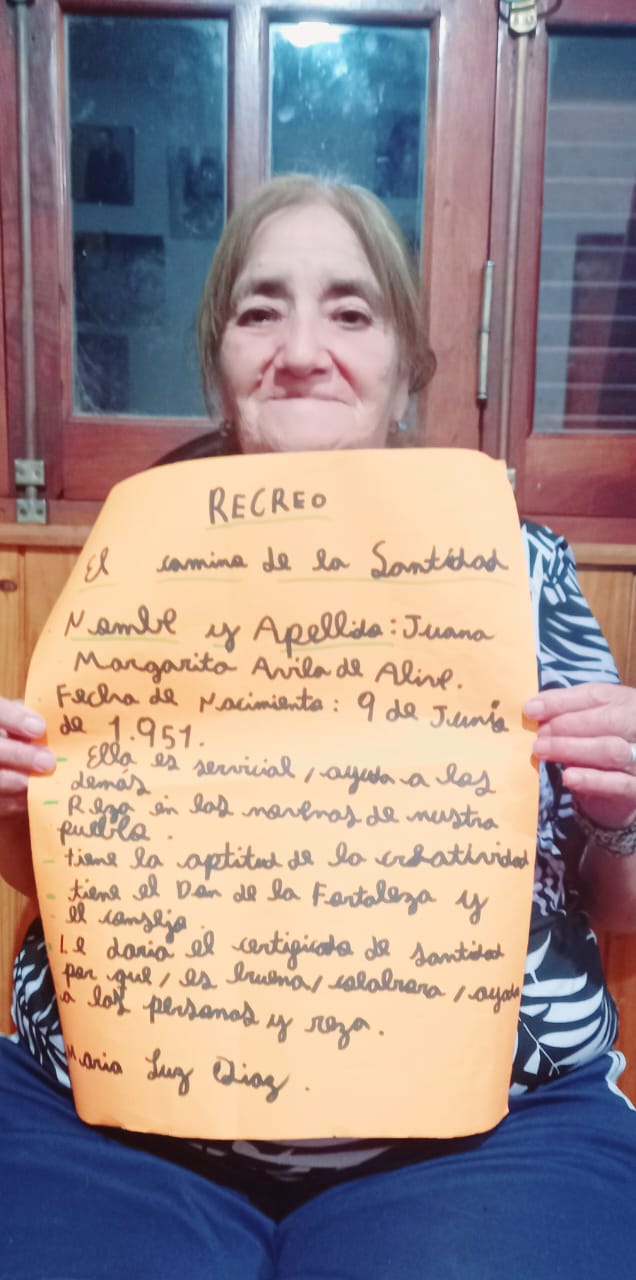 RECREO
El camino de la Santidad
Nombre y Apellido: Juana
Margarita Avila de
Fecha de Nacimiento: 9 de Junio
de 1.951.
- Ella es servicial, ayuda a los
demás
- Reza en las novenas de nuestro
pueblo.
- tiene la aptitud de la creatividad
- tiene el Don de la Fortaleza y
el consejo.
Le daria el certificado de santidad
por que, es buena, colabrora, ayuda
a las personas y reza.
Maria Luz Diaz.